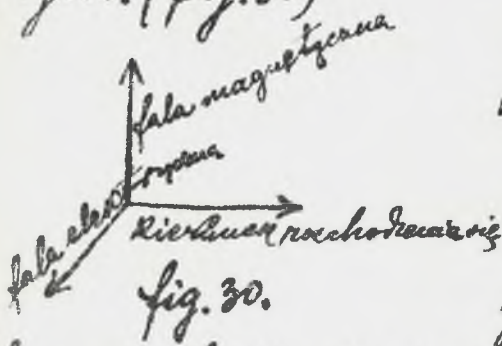 (fig. 30)
fala magnetyczna
fala elektryczna
kierunek rozchodzenia się
fig. 30.